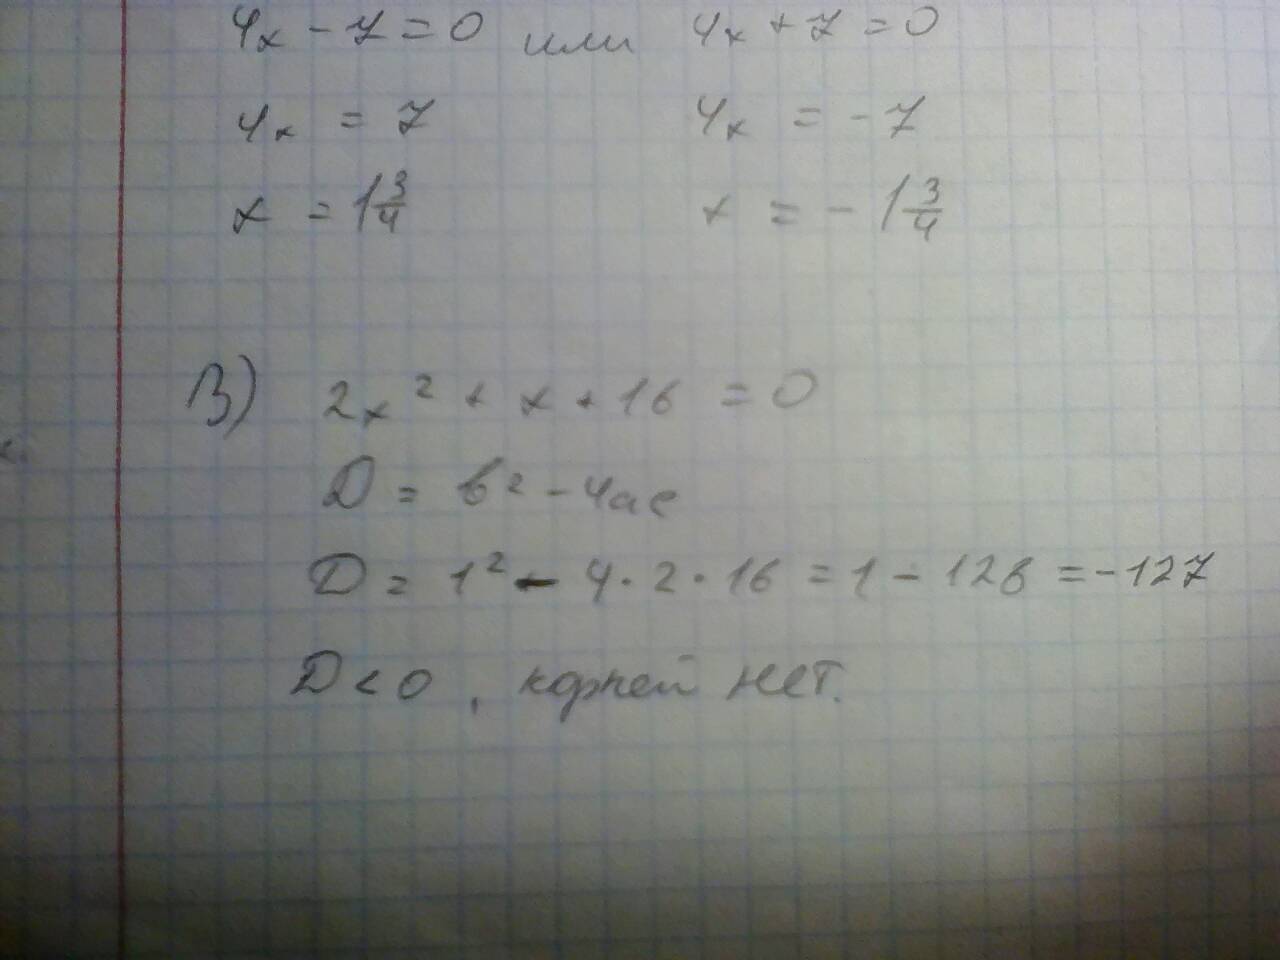 4x - 7 = 0 или 4x + 7 = 0
4x = 7 4x = -7
x = 1 3/4 x = - 1 3/4
В) 2x² + x + 16 = 0
D = b² - 4ac
D = 1² - 4 · 2 · 16 = 1 - 128 = -127
D < 0, корней нет.